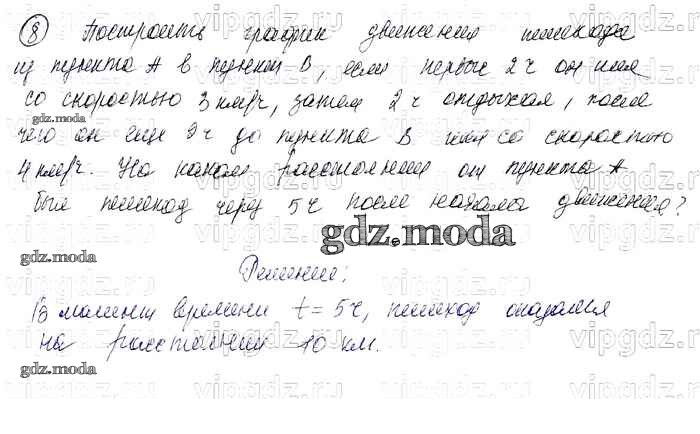 8 Построить график движения пешехода
из пункта А в пункт В, если первые 2 ч он шёл
со скоростью 3 км/ч, затем 2 ч отдыхал, после
gdz.moda
чего он ещё 2ч до пункта В шёл со скоростью
4 км/ч. На каком расстоянии от пункта А
был пешеход через 5 ч после начала движения?
gdz.moda
gdz.moda
Решение:
В момент времени t = 5 ч, пешеход оказался
на расстоянии 10 км.
gdz.moda
vipgdz.ru